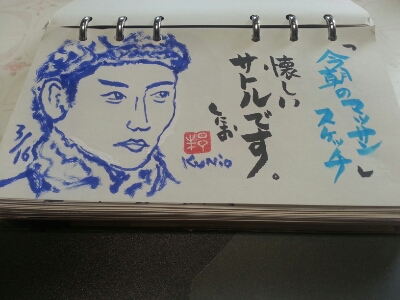 「今朝のマッサン」
スケッチ
懐しい
サトルです。
くにお
Kunio
3/16